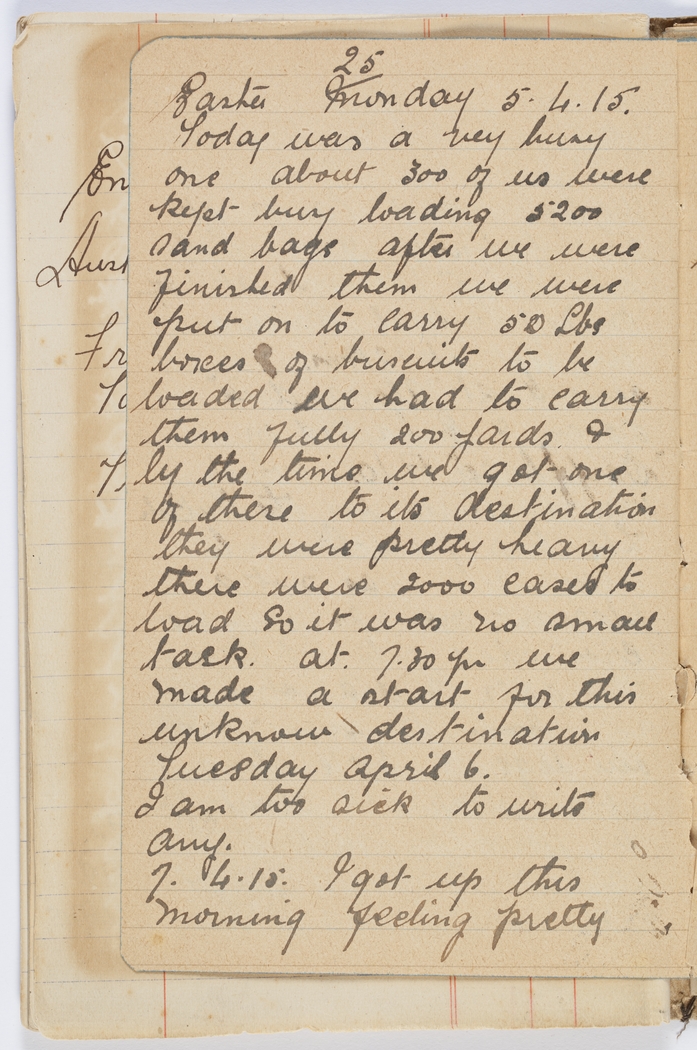 25
Easter Monday 5.4.15.
Today was a vey busy
one about 300 of us were
kept busy loading 5200
sand bags after we were
finished them we were
put on to carry 50 Lbs
boxes of buscuits to be
loaded we had to carry
them fully 200 yards &
by the time we got one
of there to its destination
they were pretty heavy
there were 2000 cases to
load So it was no small
task. at. 7.30 pm we
made a start for this
unknown destination
Tuesday April 6.
I am too sick to write
any.
7. 4.15. I got up this
morning feeling pretty
En
Aust
Fr